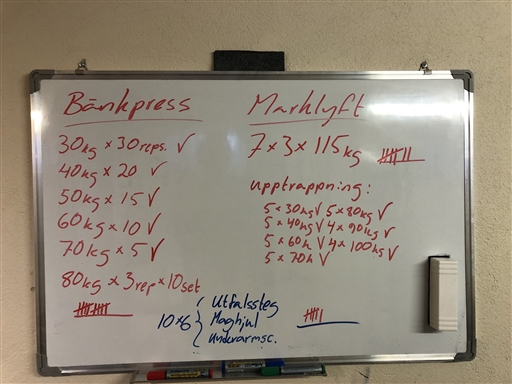 Bänkpress
30kg × 30 reps. ✓
40kg × 20 ✓
50kg × 15 ✓
60kg × 10 ✓
70kg × 5 ✓
80kg × 3rep × 10set
Marklyft
7 × 3 × 115kg
upptrappning:
5 × 30kg ✓ 5 × 80kg ✓
5 × 40kg ✓ 4 × 90kg ✓
5 × 60k ✓ 4 × 100kg ✓
5 × 70k ✓
10×6 { Utfallssteg
Maghjul
Underarmsc.